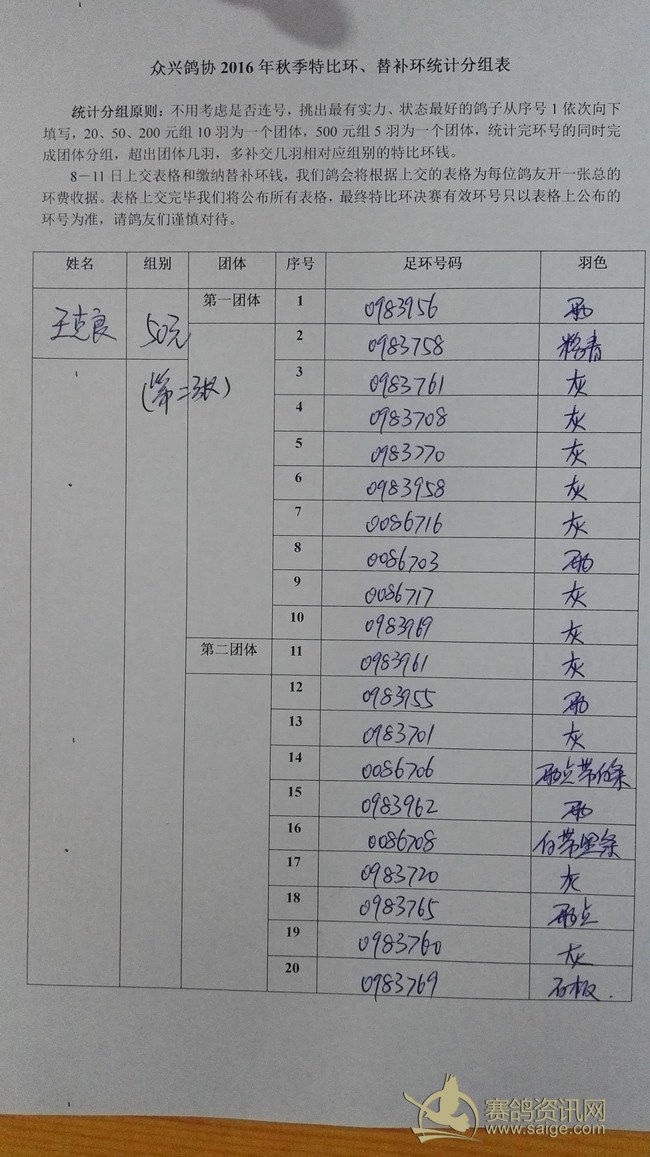 众兴鸽协 2016 年秋季特比环、替补环统计分组表
统计分组原则：不用考虑是否连号，挑出最有实力、状态最好的鸽子从序号 1 依次向下
填写，20、50、200 元组 10 羽为一个团体，500 元组 5 羽为一个团体，统计完环号的同时完
成团体分组，超出团体几羽，多补交几羽相对应组别的特比环钱。
8－11 日上交表格和缴纳替补环钱，我们鸽会将根据上交的表格为每位鸽友开一张总的
环费收据。表格上交完毕我们将公布所有表格，最终特比环决赛有效环号只以表格上公布的
环号为准，请鸽友们谨慎对待。
姓名 组别 团体 序号 足环号码 羽色
王克良 50元 第一团体 1 0983956
2 0983758
(第二张) 3 0983761 灰
4 0983708 灰
5 0983770 灰
6 0983958 灰
7 0086716 灰
8 0086703
9 0086717 灰
10 0983969 灰
第二团体 11 0983961 灰
12 0983955
13 0983701 灰
14 0086706
15 0983962
16 0086708 白带黑条
17 0983720 灰
18 0983765
19 0983760 灰
20 0983769 石板.
赛鸽资讯网
www.saige.com